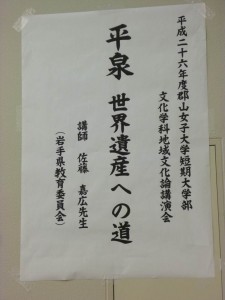 平成二十六年度郡山女子大学短期大学部
文化学科地域文化論講演会
平泉 世界遺産への道
講師 佐藤 嘉広先生
(岩手県教育委員会)